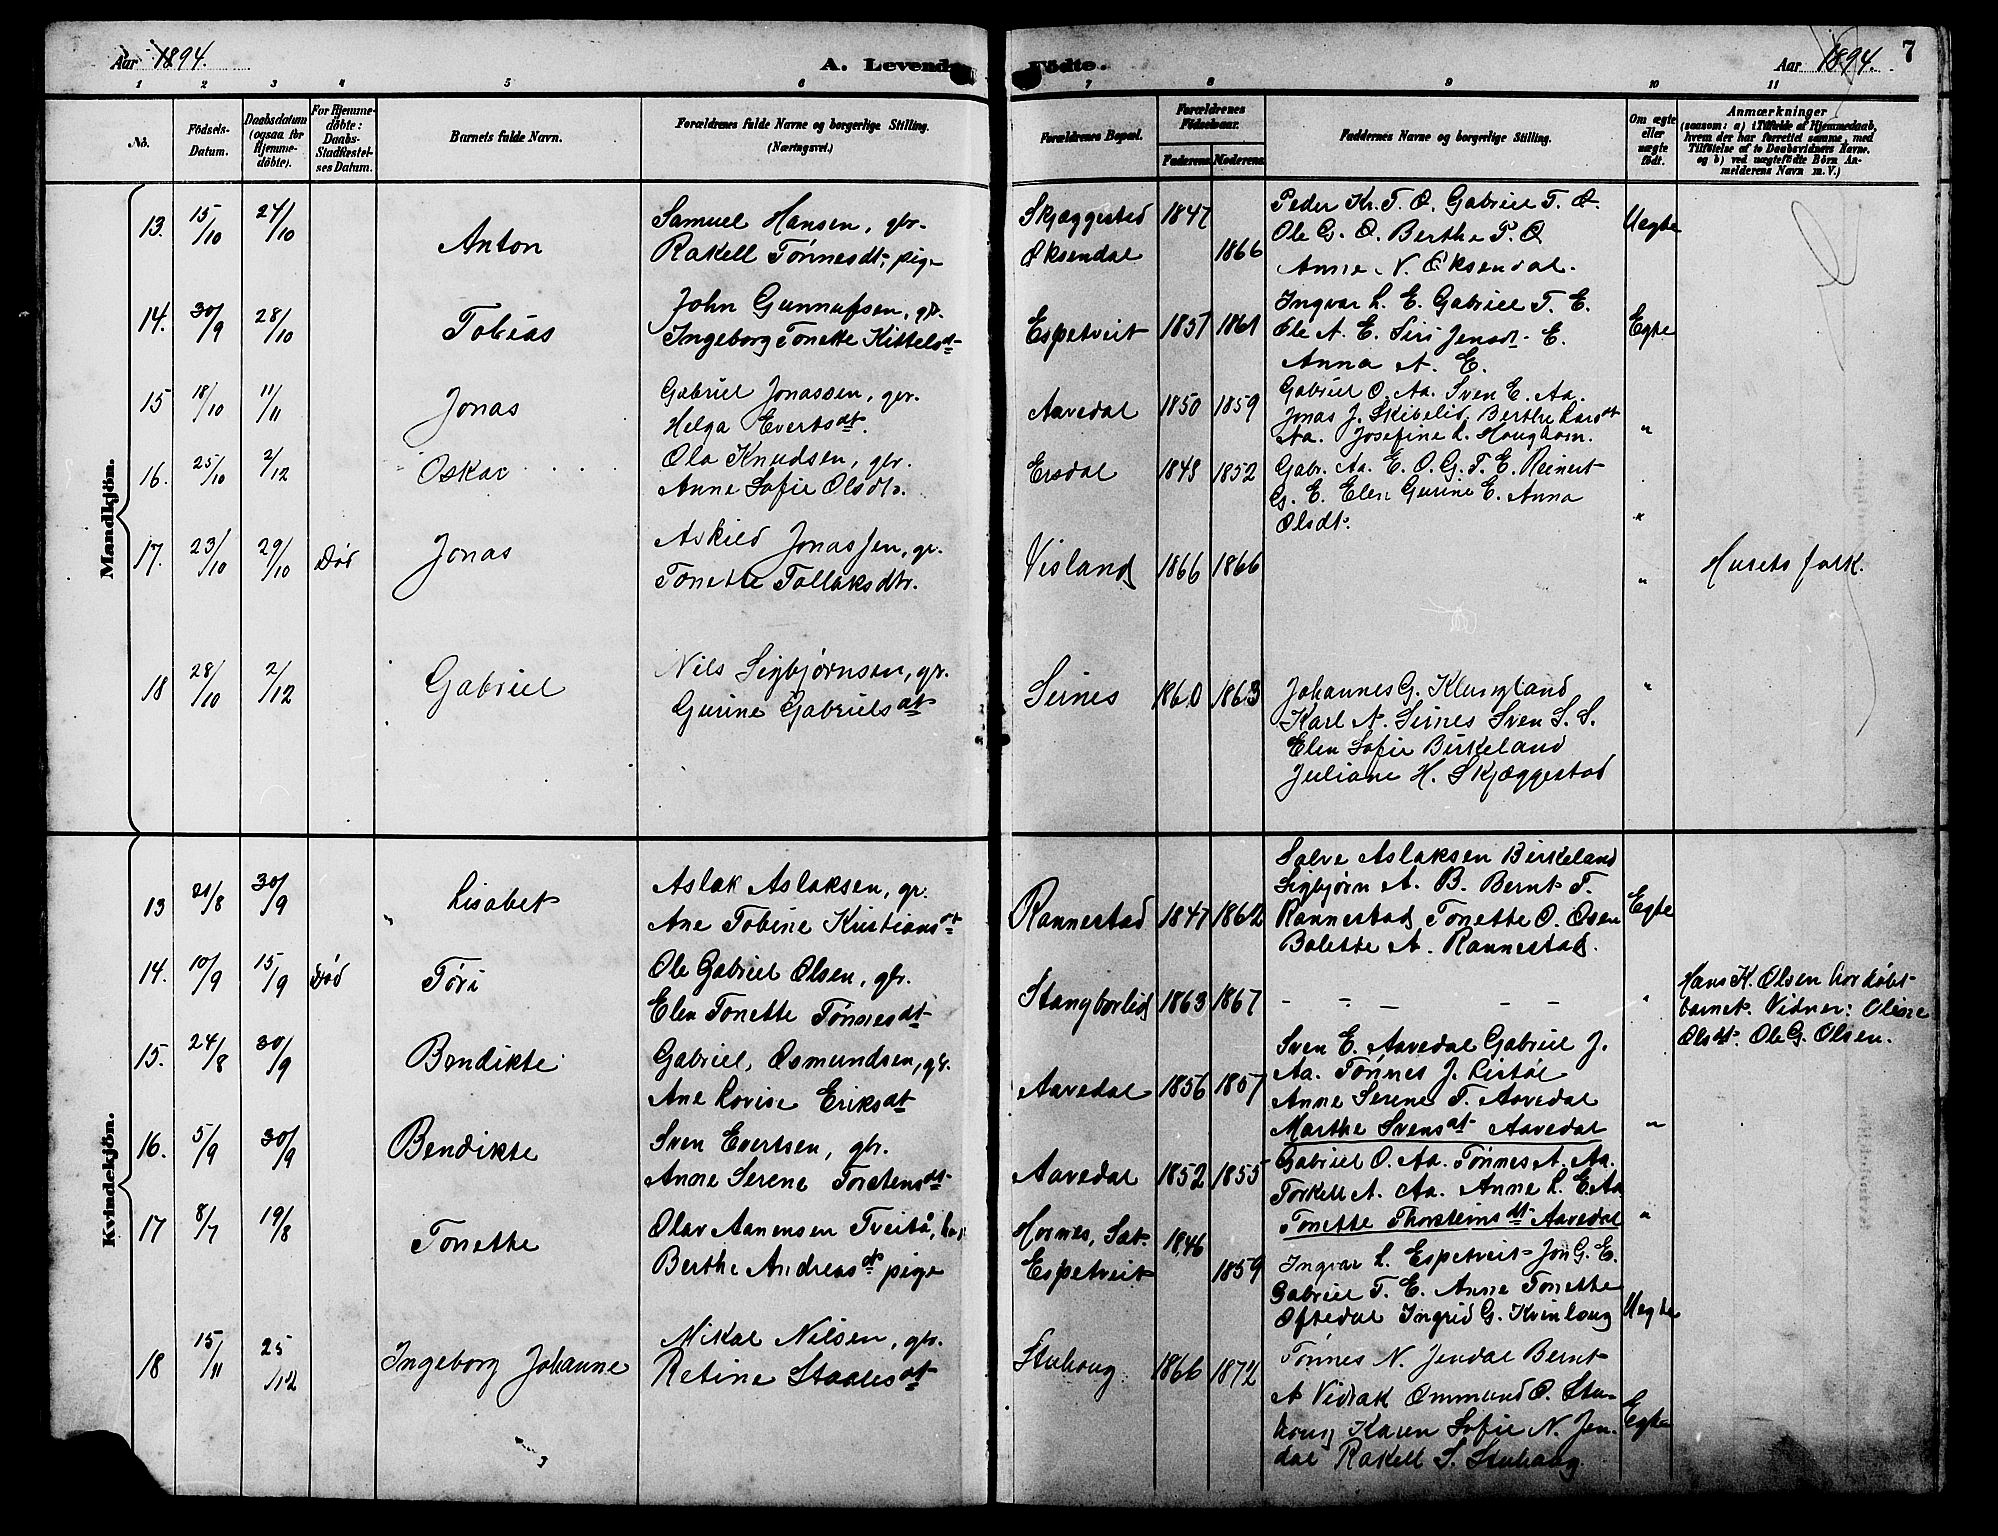 Aar 1894. A. Levende Födte. Aar 1894. 7
1 2 3 4 5 6 7 8 9 10 11
No.
Födsels-Datum.
Daabsdatum (ogsaa for Hjemmedöbte).
For Hjemmedöbte: Daabs-Stadfæstelses Datum.
Barnets fulde Navn.
Forældrenes fulde Navne og borgerlige Stilling. (Næringsvei.)
Forældrenes Bopæl.
Forældrenes Födselsaar.
Faderens. Moderens.
Faddernes Navne og borgerlige Stilling.
Om ægte eller uægte födt.
Anmærkninger
(saasom: a) i Tilfælde af Hjemmedaab,
hvem der har forrettet samme, med
Tilföielse af to Daabsvidners Navne.
og b) ved uægtefödte Börn Anmelderens Navn m. V.)
Mandkjön.
13. 15/10 24/10 Anton
Samuel Hansen, gbr.
Rakell Tønnesdt, pige
Skjæggestad 1847
Øksendal 1866
Peder Kr. T. Ø. Gabriel T. Ø.
Ole G. Ø. Berthe T. Ø
Anne N. Øksendal.
Uegte
14. 30/9 28/10 Tobias
John Gunnufsen, gbr.
Ingeborg Tonette Kittelsdt
Espetveit 1857 1861
Ingvar L. E. Gabriel T. E.
Ole A. E. Siri Jensdt. E.
Anna A. E.
Egte
15 18/10 11/11 Jonas
Gabriel Jonassen, gbr.
Helga Evertsdt.
Aavedal 1850 1859
Gabriel O. Aa. Sven E. Aa.
Jonas J. Skibelid, Berthe Larsdt
Aa. Josefine L. Houghom.
"
16. 25/10 2/12 Oskar
Ola Knudsen, gbr.
Anne Sofie Olsdtr.
Ersdal 1848 1852
Gabr. Aa. E. O. G. T. E. Reinert
G. E. Elen Gurine E. Anna
Olsdt.
"
17. 23/10 29/10 Død Jonas
Askild Jonassen, gbr.
Tonette Tollaksdtr.
Visland 1866 1866
"
Husets folk.
18 28/10 2/12 Gabriel
Nils Sigbjørnsen, gbr.
Gurine Gabrielsdt
Seines 1860 1863
Johannes G. Klungland
Karl A. Seines Sven S. S.
Elen Sofie Birkeland
Juliane H. Skjæggestad
"
Kvindekjön.
13 21/8 30/9 Lisabet
Aslak Aslaksen, gbr.
Ane Tobine Kristiansdt
Rannestad 1847 1862
Salve Aslaksen Birkeland
Sigbjørn A. B. Bernt T.
Rannestad, Tonette O. Osen
Bolette A. Rannestad.
Egte
14. 10/9 15/9 Død Tøri
Ole Gabriel Olsen, gbr.
Elen Tonette Tønnesdt
Stangborlid 1863 1867
"
Hans K. Olsen hordøbt
barnet. Vidner: Olisne
Olsdt. Ole G. Olsen.
15. 24/8 30/9 Bendikte
Gabriel Osmundsen, gbr.
Ane Lovise Eriksdt
Aavedal 1856 1857
Sven E. Aavedal Gabriel J.
Aa. Tønnes J. Listøl
Anne Serene T. Aavedal
Marthe Svensdt Aavedal
"
16. 5/9 30/9 Bendikte
Sven Evertsen, gbr.
Anne Serene Torstensdt
Aavedal 1852 1855
Gabriel O. Aa. Tønnes A. Aa.
Torkell A. Aa. Anne L. E. Aa
Tonette Thorsteinsdt Aavedal
"
17 8/7 19/8 Tonette
Olav Aanensen Tveitå,
Berthe Andreasdt, pige
Hornes, Sæt. 1846
Espetveit 1859
Ingvar L. Espetveit Jon G. E.
Gabriel T. E. Anne Tonette
Oftedal Ingrid G. Kvinlaug
Uegte
18 15/11 25/12 Ingeborg Johanne
Mikal Nilsen, gbr.
Retine Staalesdt
Stuhoug 1866 1872
Tønnes N. Jendal Bernt
A Vidrak Ommund O. Stu-
houg Karen Sofie N. Jen-
dal Rakell S. Stuhoug.
Egte